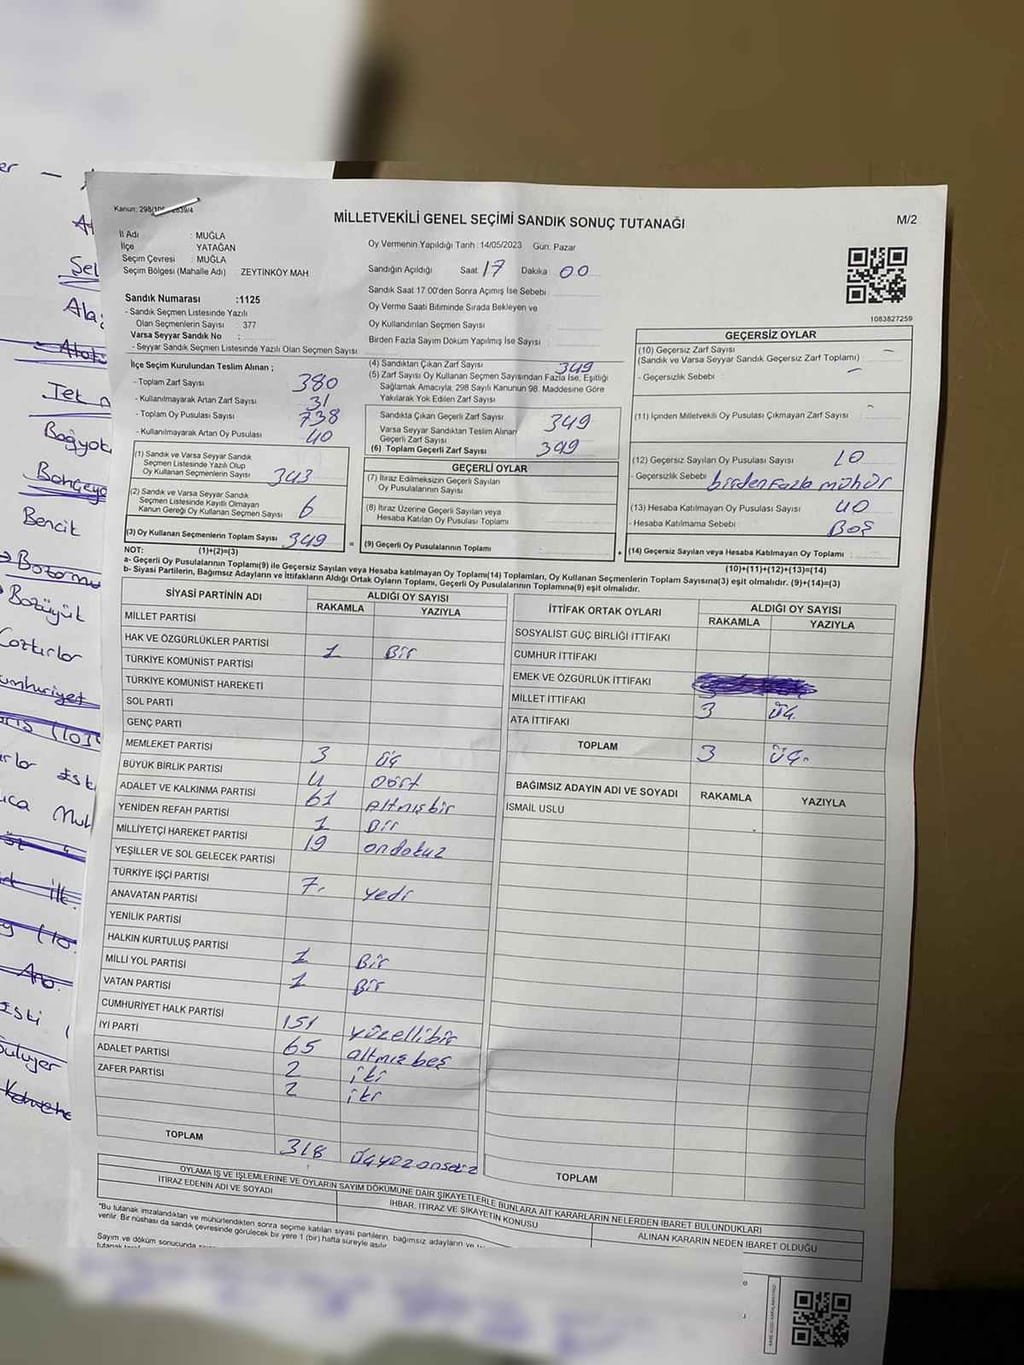 Kanun: 298/10
MİLLETVEKİLİ GENEL SEÇİMİ SANDIK SONUÇ TUTANAĞI
M/2
İl Adı : MUĞLA
İlçe : YATAĞAN
Seçim Çevresi : MUĞLA
Seçim Bölgesi (Mahalle Adı) ZEYTİNKÖY MAH
Oy Vermenin Yapıldığı Tarih :14/05/2023 Gün: Pazar
Sandığın Açıldığı Saat 17 Dakika 00
Sandık Saat 17.00'den Sonra Açılmış İse Sebebi
Oy Verme Saati Bitiminde Sırada Bekleyen ve
Oy Kullandırılan Seçmen Sayısı
Birden Fazla Sayım Döküm Yapılmış İse Sayısı
1083827259
Sandık Numarası :1125
- Sandık Seçmen Listesinde Yazılı
Olan Seçmenlerin Sayısı 377
Varsa Seyyar Sandık No :
- Seyyar Sandık Seçmen Listesinde Yazılı Olan Seçmen Sayısı
İlçe Seçim Kurulundan Teslim Alınan ;
- Toplam Zarf Sayısı 380
- Kullanılmayarak Artan Zarf Sayısı 31
- Toplam Oy Pusulası Sayısı 738
- Kullanılmayarak Artan Oy Pusulası 40
(1) Sandık ve Varsa Seyyar Sandık
Seçmen Listesinde Yazılı Olup
Oy Kullanan Seçmenlerin Sayısı 343
(2) Sandık ve Varsa Seyyar Sandık
Seçmen Listesinde Kayıtlı Olmayan
Kanun Gereği Oy Kullanan Seçmen Sayısı 6
(3) Oy Kullanan Seçmenlerin Toplam Sayısı 349
(1)+(2)=(3)
(4) Sandıktan Çıkan Zarf Sayısı 349
(5) Zarf Sayısı Oy Kullanan Seçmen Sayısından Fazla İse, Eşitliği
Sağlamak Amacıyla, 298 Sayılı Kanunun 98. Maddesine Göre
Yakılarak Yok Edilen Zarf Sayısı
Sandıkta Çıkan Geçerli Zarf Sayısı 349
Varsa Seyyar Sandıktan Teslim Alınan
Geçerli Zarf Sayısı
(6) Toplam Geçerli Zarf Sayısı 349
GEÇERLİ OYLAR
(7) İtiraz Edilmeksizin Geçerli Sayılan
Oy Pusulalarının Sayısı
(8) İtiraz Üzerine Geçerli Sayılan veya
Hesaba Katılan Oy Pusulası Toplamı
= (9) Geçerli Oy Pusulalarının Toplamı
GEÇERSİZ OYLAR
(10) Geçersiz Zarf Sayısı
(Sandık ve Varsa Seyyar Sandık Geçersiz Zarf Toplamı)
- Geçersizlik Sebebi
(11) İçinden Milletvekili Oy Pusulası Çıkmayan Zarf Sayısı
(12) Geçersiz Sayılan Oy Pusulası Sayısı 10
- Geçersizlik Sebebi birden fazla mühür
(13) Hesaba Katılmayan Oy Pusulası Sayısı 40
- Hesaba Katılmama Sebebi Boş
+ (14) Geçersiz Sayılan veya Hesaba Katılmayan Oy Toplamı
(10)+(11)+(12)+(13)=(14)
NOT:
a- Geçerli Oy Pusulasının Toplamı(9) ile Geçersiz Sayılan veya Hesaba katılmayan Oy Toplamı(14) Toplamları, Oy Kullanan Seçmenlerin Toplam Sayısına(3) eşit olmalıdır. (9)+(14)=(3)
b- Siyasi Partilerin, Bağımsız Adayların ve İttifakların Aldığı Ortak Oyların Toplamı, Geçerli Oy Pusulalarının Toplamına(9) eşit olmalıdır.
SİYASİ PARTİNİN ADI ALDIĞI OY SAYISI
RAKAMLA YAZIYLA
MİLLET PARTİSİ
HAK VE ÖZGÜRLÜKLER PARTİSİ 1 Bir
TÜRKİYE KOMÜNİST PARTİSİ
TÜRKİYE KOMÜNİST HAREKETİ
SOL PARTİ
GENÇ PARTİ
MEMLEKET PARTİSİ 3 üç
BÜYÜK BİRLİK PARTİSİ 4 Dört
ADALET VE KALKINMA PARTİSİ 61 Altmışbir
YENİDEN REFAH PARTİSİ 1 Bir
MİLLİYETÇİ HAREKET PARTİSİ 19 ondokuz
YEŞİLLER VE SOL GELECEK PARTİSİ
TÜRKİYE İŞÇİ PARTİSİ 7 yedi
ANAVATAN PARTİSİ
YENİLİK PARTİSİ
HALKIN KURTULUŞ PARTİSİ
MİLLİ YOL PARTİSİ 1 Bir
VATAN PARTİSİ 1 Bir
CUMHURİYET HALK PARTİSİ 151 yüzellibir
İYİ PARTİ 65 altmışbeş
ADALET PARTİSİ 2 iki
ZAFER PARTİSİ 2 iki
TOPLAM 318 üçyüzonsekiz
İTTİFAK ORTAK OYLARI ALDIĞI OY SAYISI
RAKAMLA YAZIYLA
SOSYALİST GÜÇ BİRLİĞİ İTTİFAKI
CUMHUR İTTİFAKI
EMEK VE ÖZGÜRLÜK İTTİFAKI
MİLLET İTTİFAKI 3 üç
ATA İTTİFAKI
TOPLAM 3 üç
BAĞIMSIZ ADAYIN ADI VE SOYADI RAKAMLA YAZIYLA
İSMAİL USLU
TOPLAM
OYLAMA İŞ VE İŞLEMLERİNE VE OYLARIN SAYIM DÖKÜMÜNE DAİR ŞİKAYETLERLE BUNLARA AİT KARARLARIN NELERDEN İBARET BULUNDUKLARI
İTİRAZ EDENİN ADI VE SOYADI
İHBAR, İTİRAZ VE ŞİKAYETİN KONUSU
ALINAN KARARIN NEDEN İBARET OLDUĞU
"Bu tutanak imzalandıktan ve mühürlendikten sonra seçime katılan siyasi partilerin, bağımsız adayların ve
verilir. Bir nüshası da sandık çevresinde görülecek bir yere 1 (bir) hafta süreyle asılır.
Sayım ve döküm sonucunda
Bencik
Bozüyük